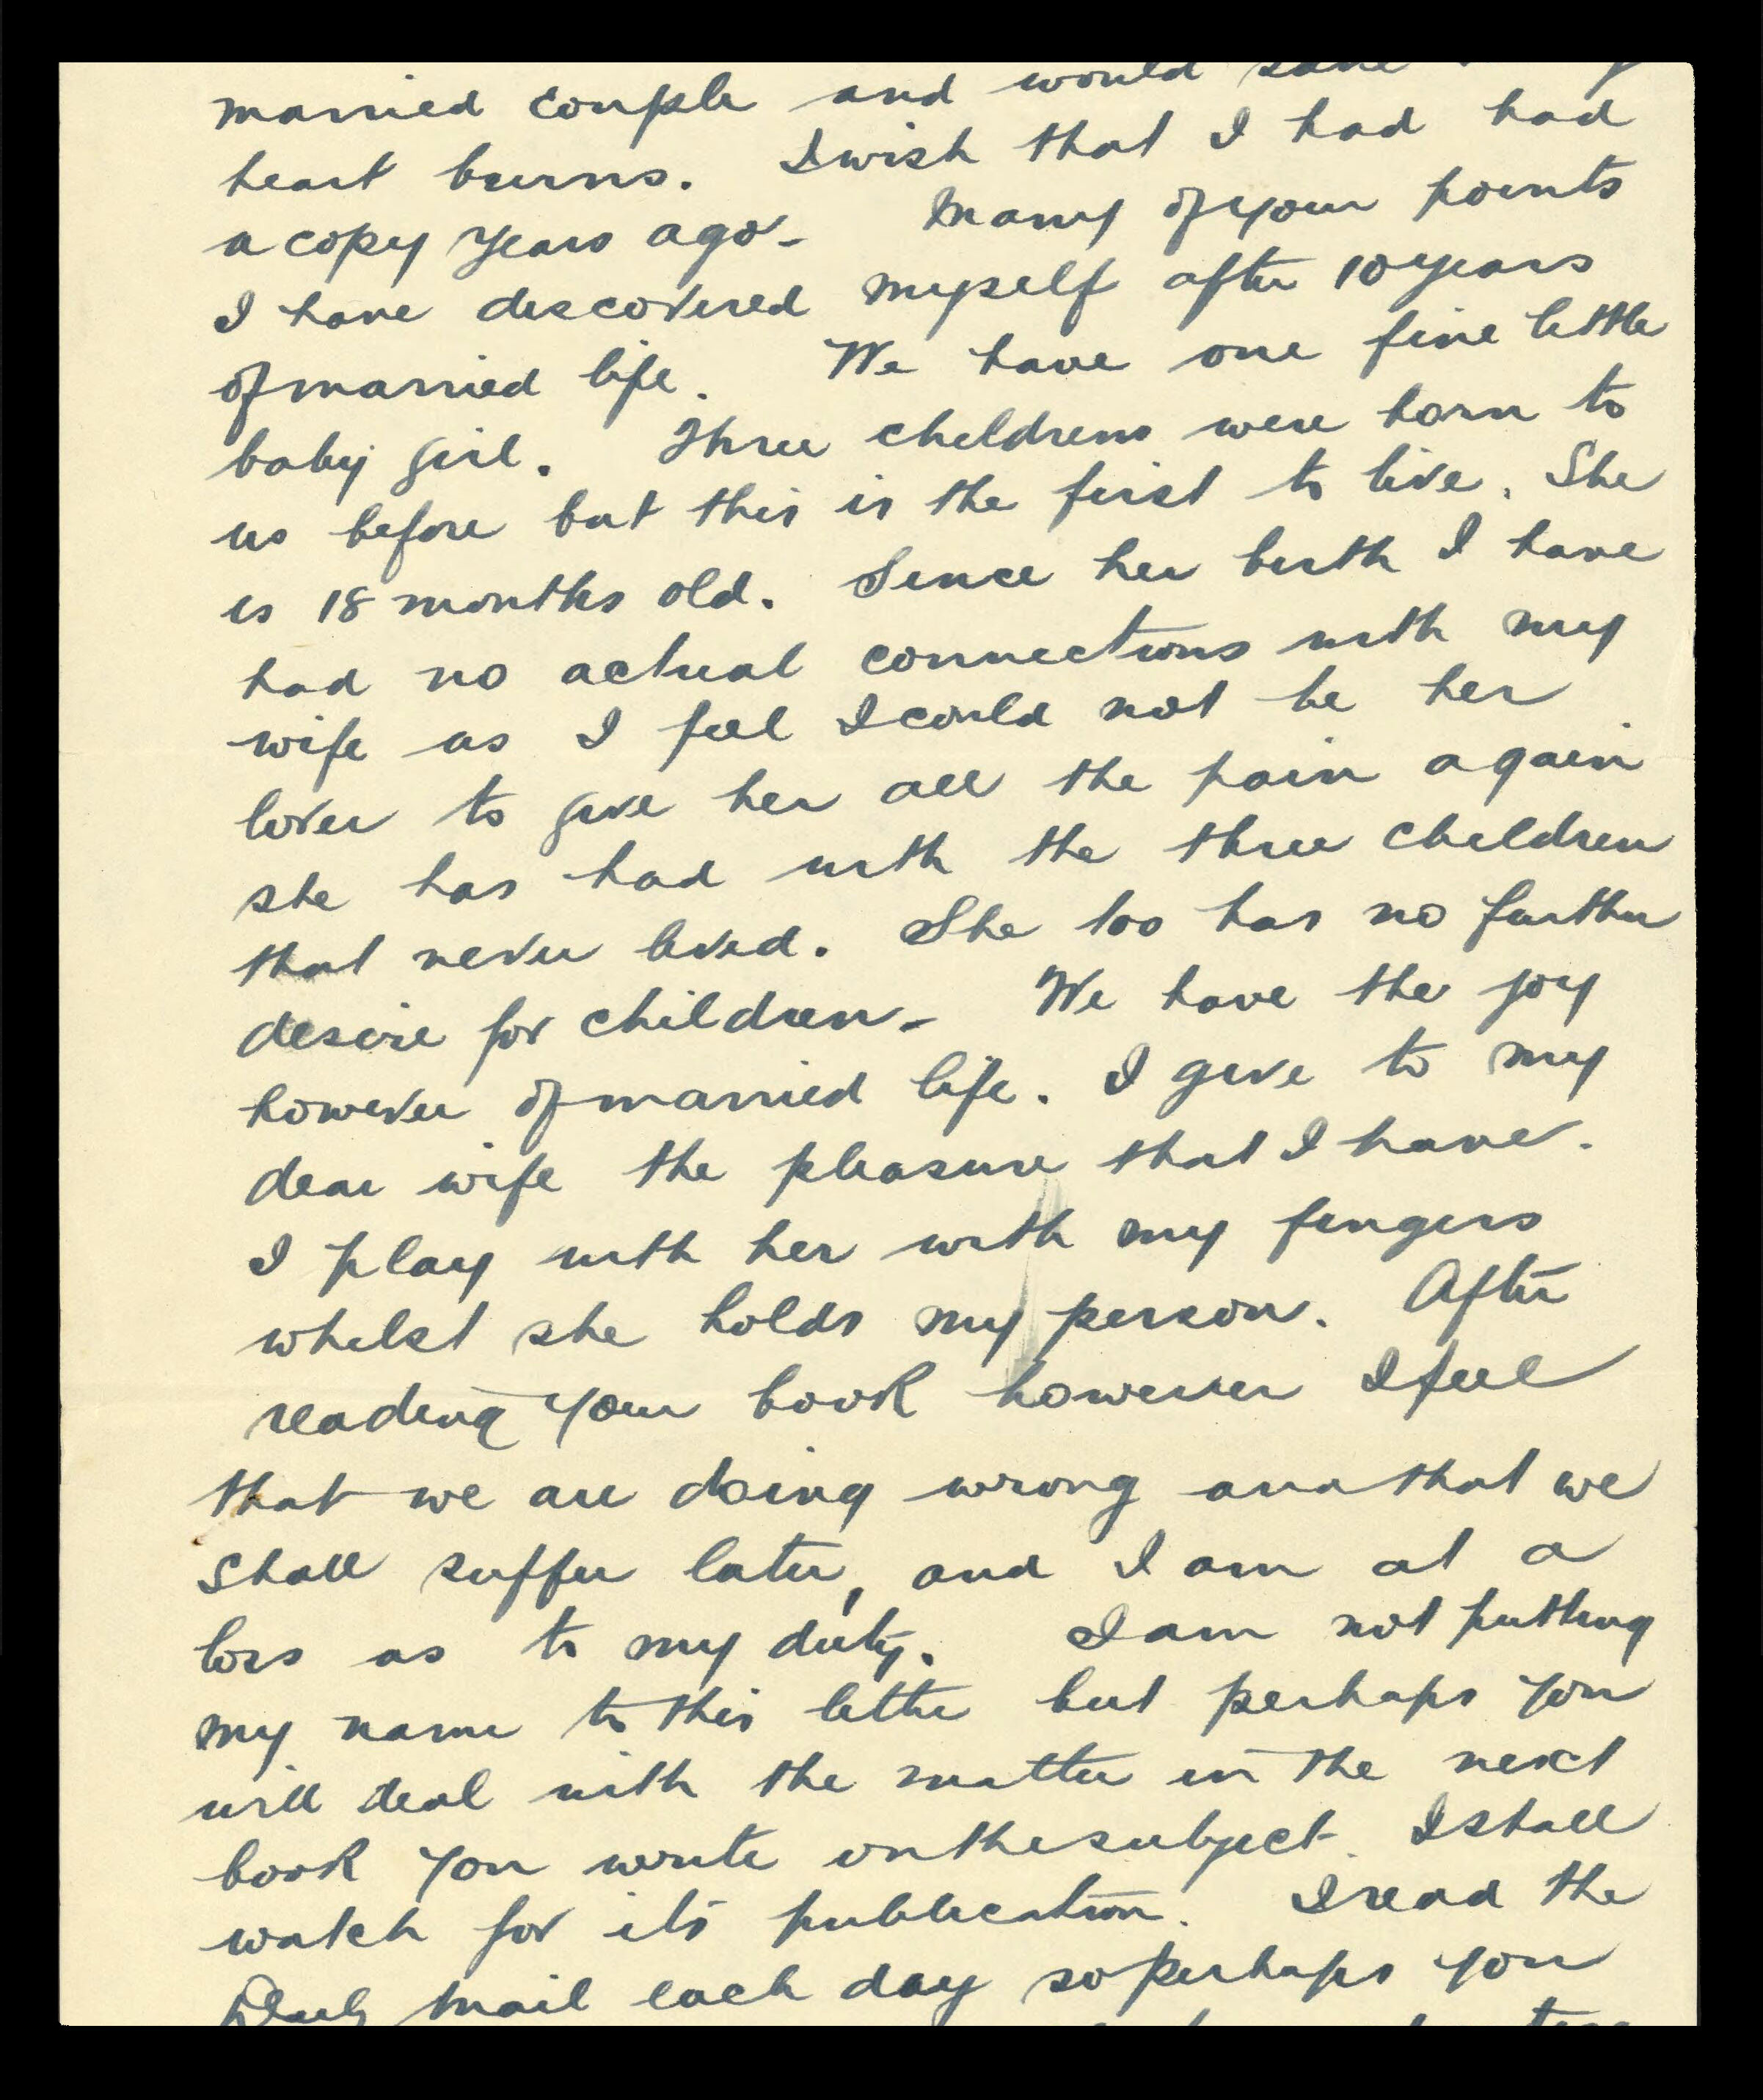 married couple and would save
heart burns. I wish that I had had
a copy years ago - Many of your points
I have discovered myself after 10 years
of married life. We have one fine little
baby girl. Three childrens were born to
us before but this is the first to live. She
is 18 months old. Since her birth I have
had no actual connections with my
wife as I feel I could not be her
lover to give her all the pain again
she has had with the three children
that never lived. She too has no further
desire for children - We have the joy
however of married life. I give to my
dear wife the pleasure that I have.
I play with her with my fingers
whilst she holds my person. After
reading your book however I feel
that we are doing wrong and that we
shall suffer later, and I am at a
loss as to my duty. I am not putting
my name to this letter but perhaps you
will deal with the matter in the next
book you write on the subject. I shall
watch for its publication. I read the
Daily Mail each day so perhaps you